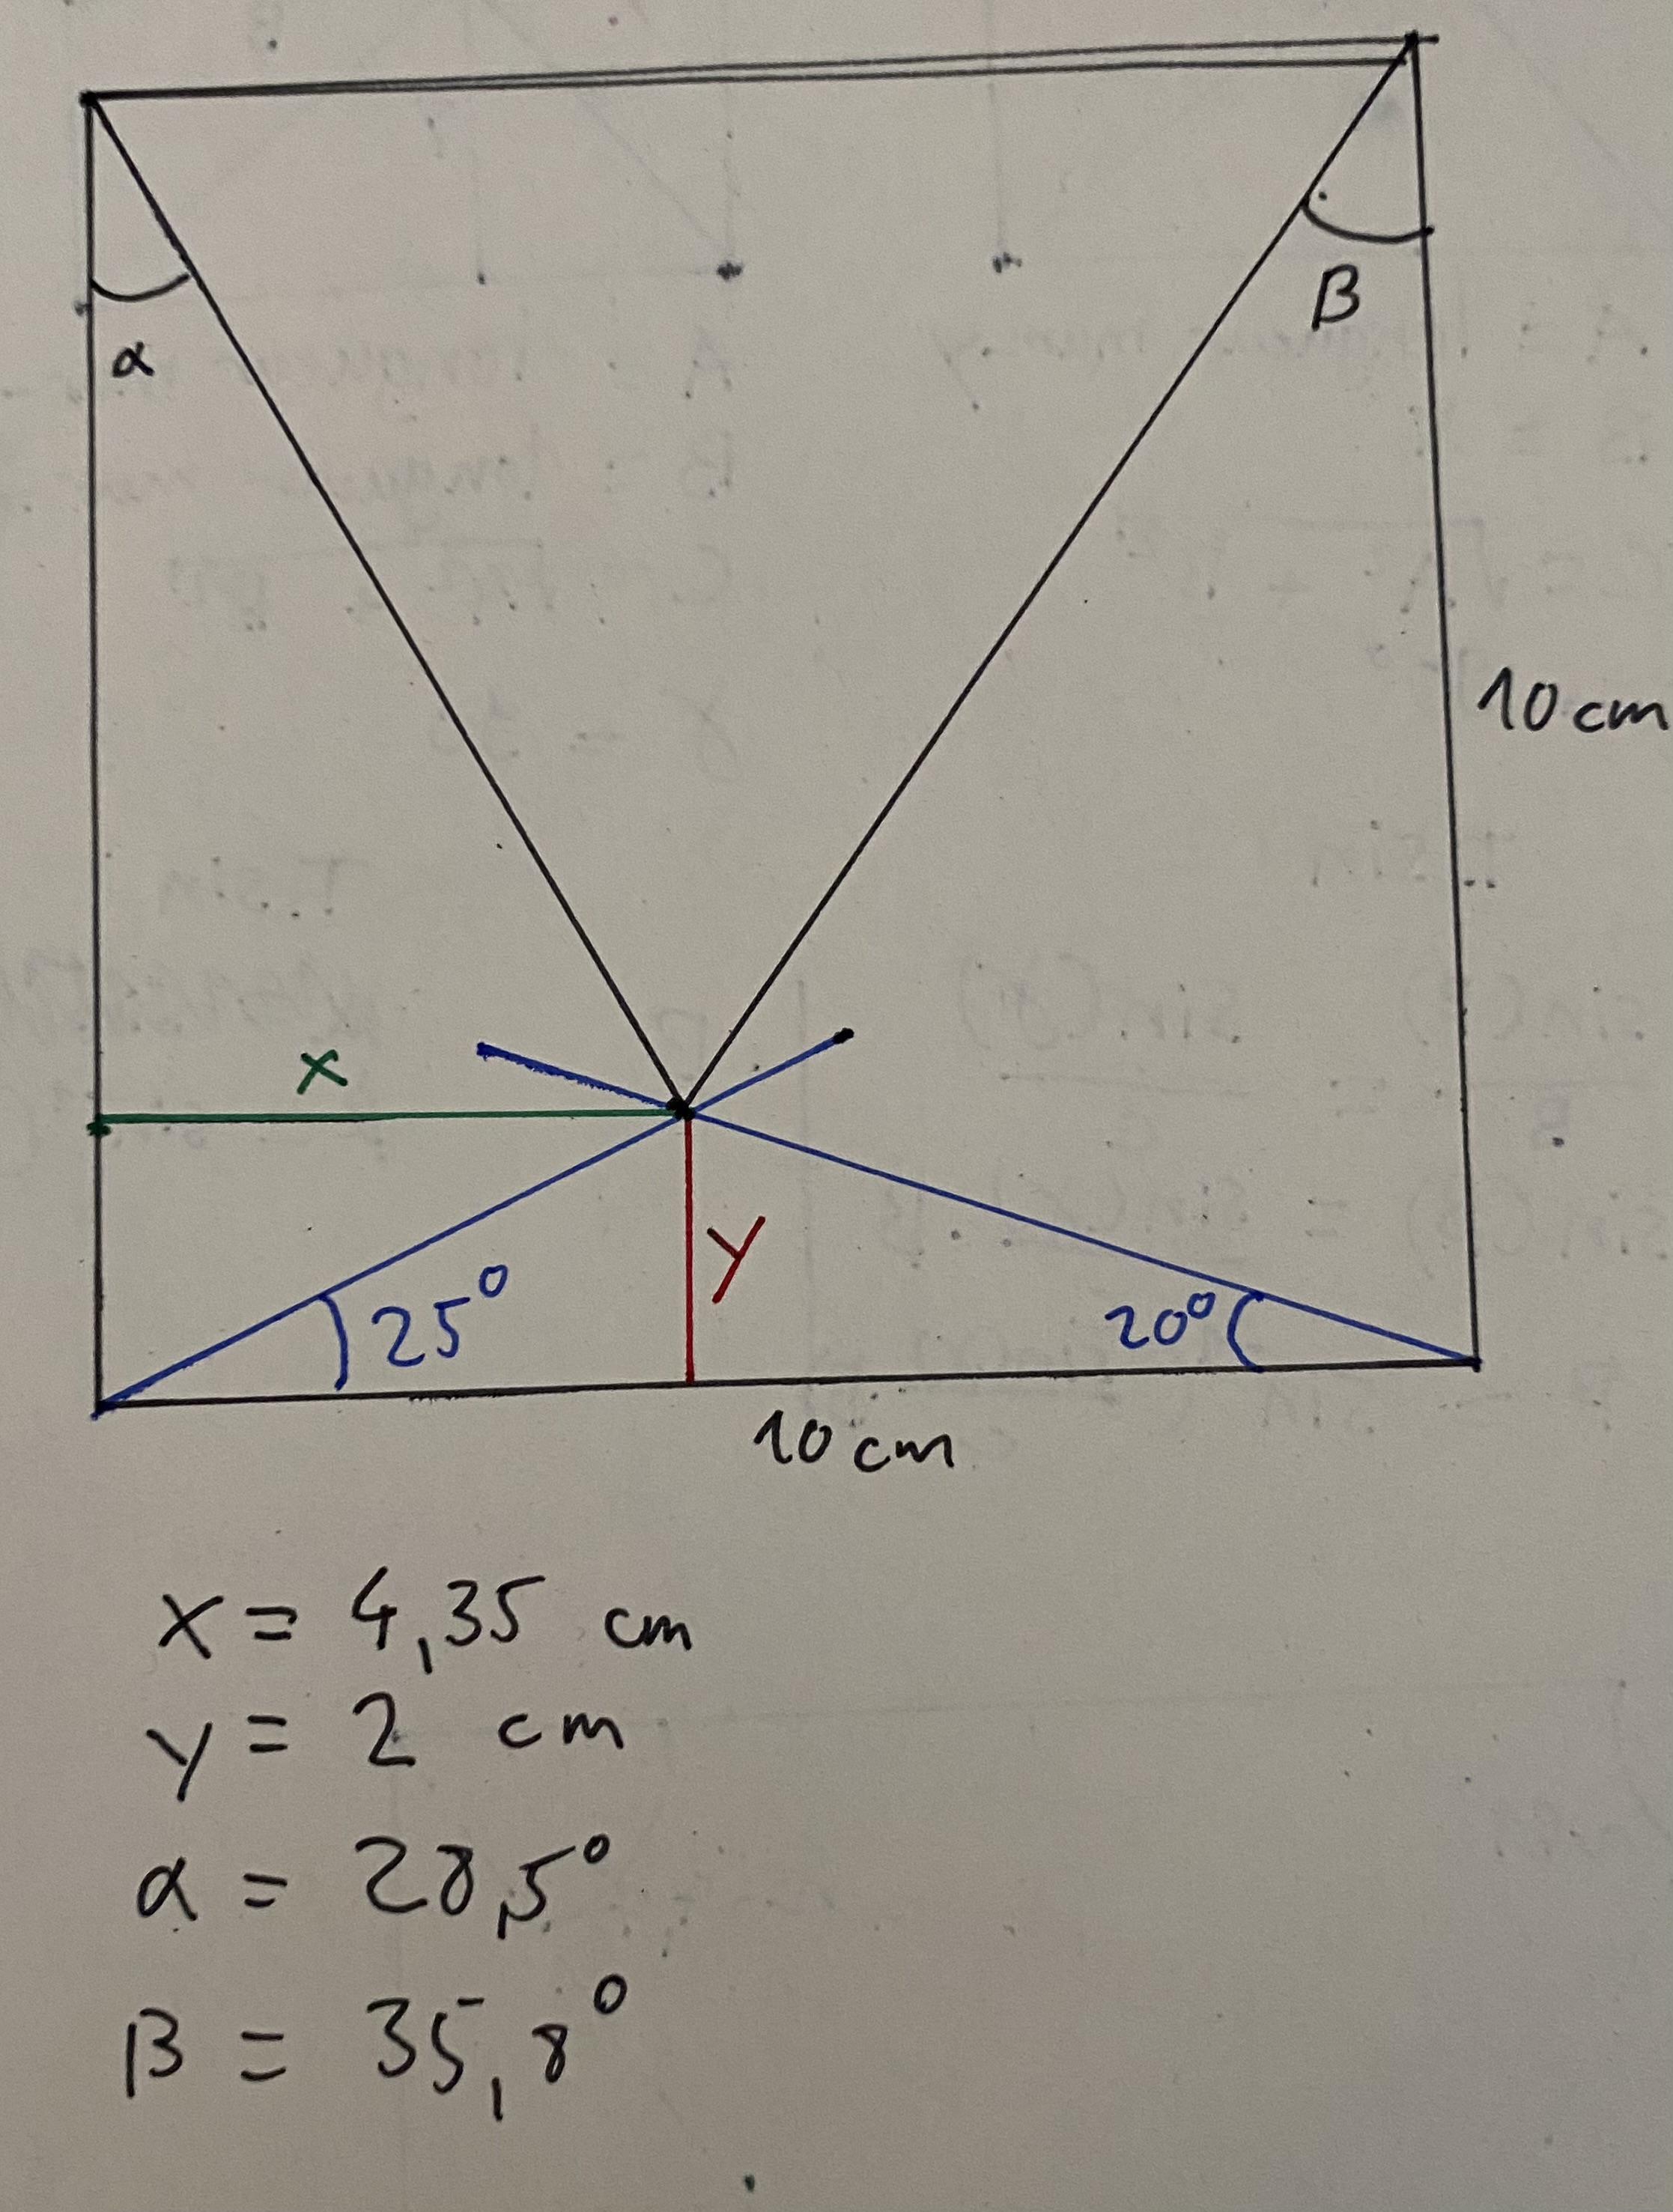 α
β
10 cm
x
y
25°
20°
10 cm
x = 4,35 cm
y = 2 cm
α = 28,5°
β = 35,8°